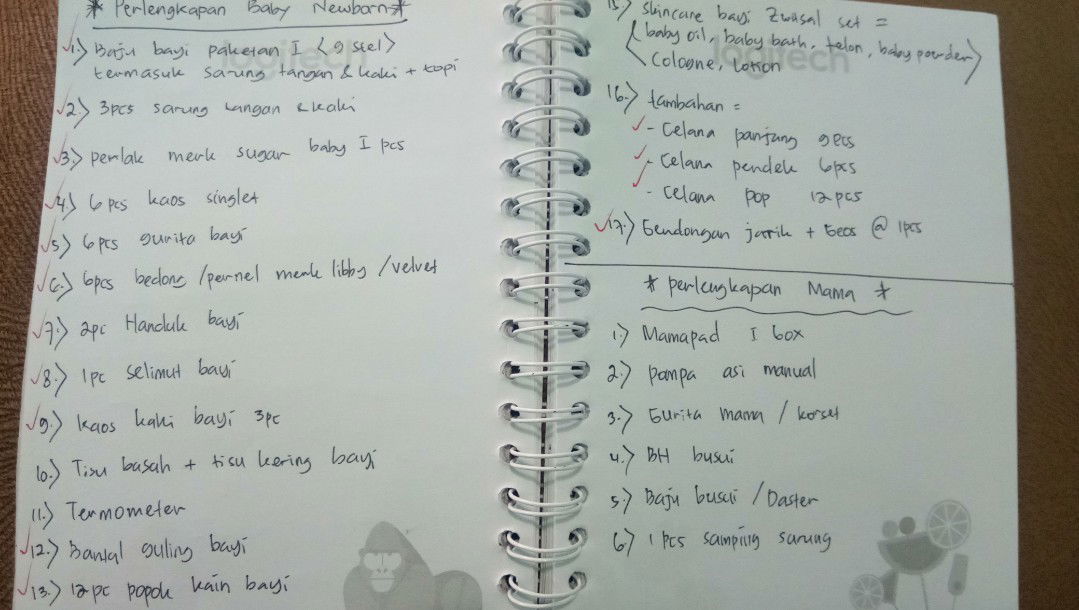 * Perlengkapan Baby Newborn *
1.) Baju bayi paketan I <9 stel>
termasuk sarung tangan & kaki + topi
2.) 3pcs sarung tangan & kaki
3.) perlak merk sugar baby I pcs
4.) 6 pcs kaos singlet
5.) 6 pcs gurita bayi
6.) 6pcs bedong / pernel merk libby / velvet
7.) 2pc Handuk bayi
8.) 1pc selimut bayi
9.) kaos kaki bayi 3pc
10.) Tisu basah + tisu kering bayi
11.) Termometer
12.) Bantal guling bayi
13.) 12 pc popok kain bayi
15.) skincare bayi Zwitsal set =
<baby oil, baby bath, telon, baby powder>
<Cologne, Lotion
16.) tambahan =
- Celana panjang 9pcs
- Celana pendek 6pcs
- Celana pop 12 pcs
17.) Gendongan jarik + Geos @ 1pcs
* Perlengkapan Mama *
1.) Mamapad I box
2.) pompa asi manual
3.) Gurita mama / korset
4.) BH busui
5.) Baju busui / Daster
6.) 1 pcs samping sarung
logitech
logitech